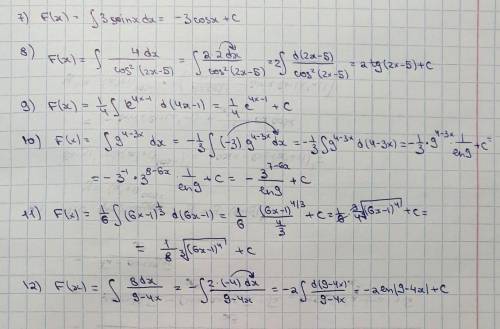 7) F(x) = ∫ 3 sinx dx = -3cosx + C
8) F(x) = ∫ 4dx / cos²(2x-5) = ∫ 2·2dx / cos²(2x-5) = 2∫ d(2x-5) / cos²(2x-5) = 2 tg(2x-5) + C
9) F(x) = 1/4 ∫ e^(4x-1) d(4x-1) = 1/4 e^(4x-1) + C
10) F(x) = ∫ 9^(4-3x) dx = -1/3 ∫ (-3) 9^(4-3x) dx = -1/3 ∫ 9^(4-3x) d(4-3x) = -1/3 · 9^(4-3x) · 1/ln9 + C =
= -3^(-1) · 3^(8-6x) · 1/ln9 + C = - 3^(7-6x) / ln9 + C
11) F(x) = 1/6 ∫ (6x-1)^(1/3) d(6x-1) = 1/6 · (6x-1)^(4/3) / (4/3) + C = 1/6 · 3/4 ∛(6x-1)⁴ + C =
= 1/8 ∛(6x-1)⁴ + C
12) F(x) = ∫ 8dx / 9-4x = -∫ 2·(-4)dx / 9-4x = -2∫ d(9-4x) / 9-4x = -2ln|9-4x| + C